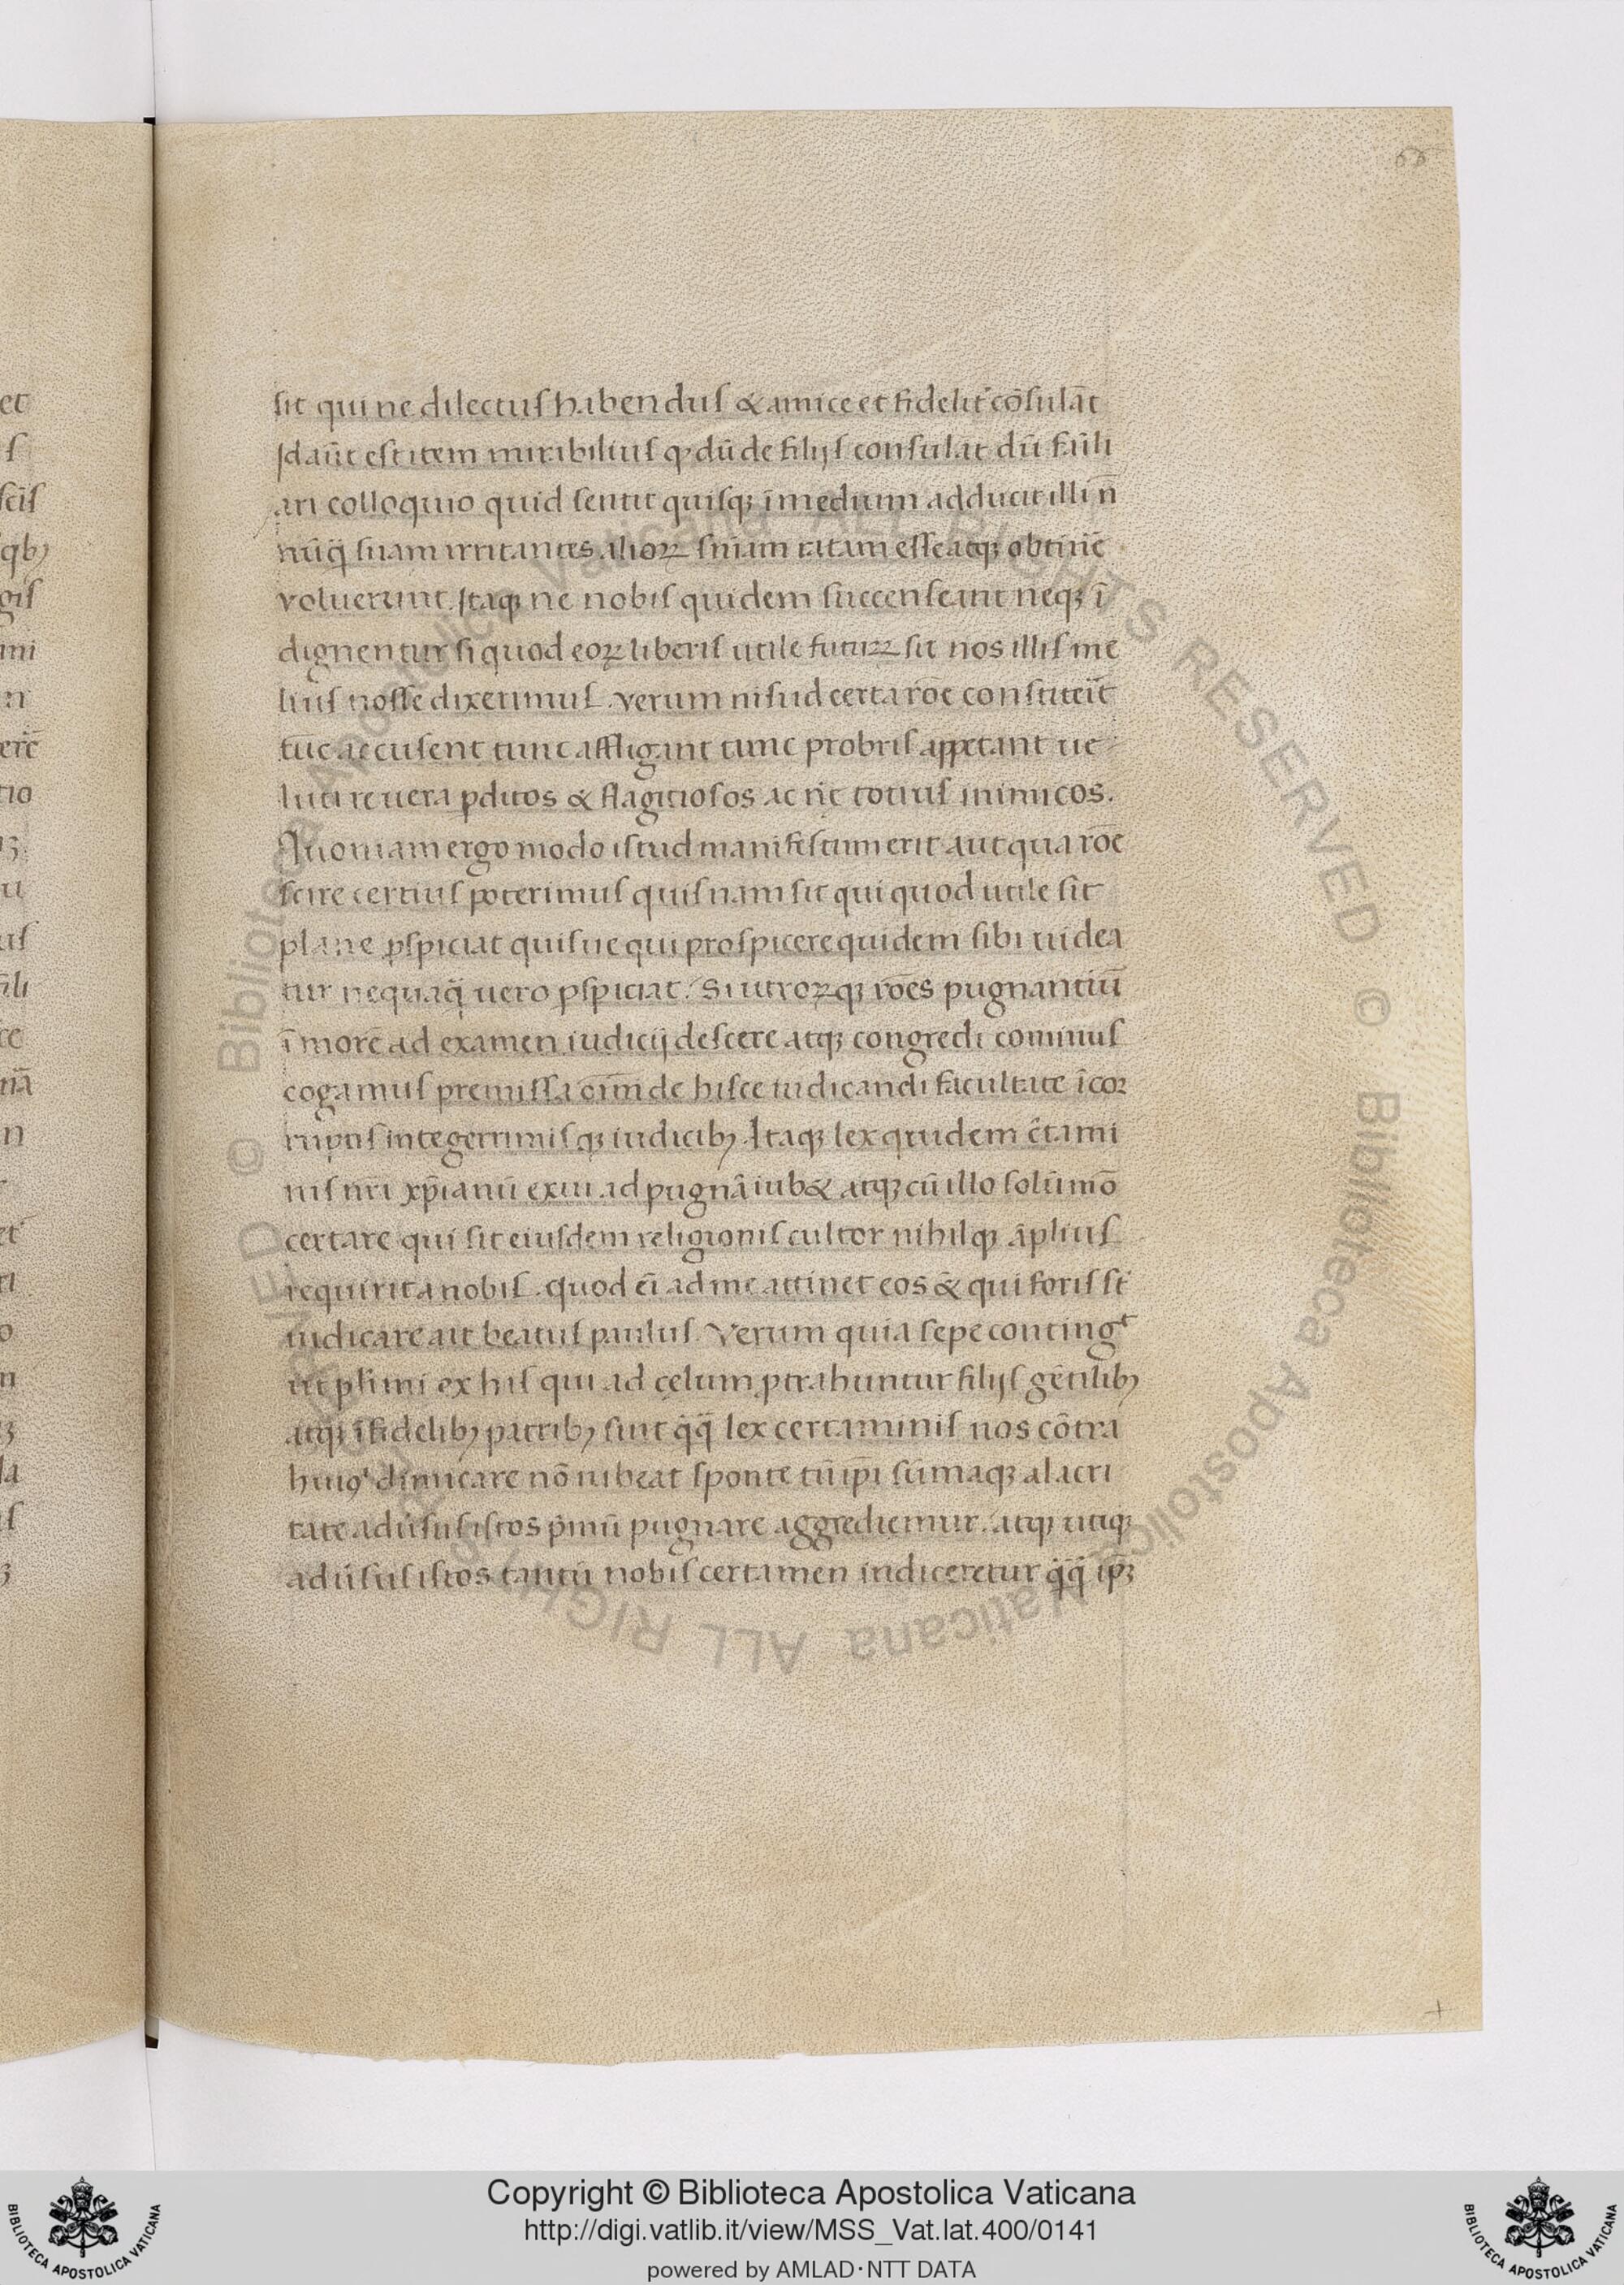 66
sit qui ne dilectus habendus & amice et fidelit̃ cõsulãt
Id aũt est item mirabilius q̣ dũ de filijs consulat dũ fãili
ari colloquio quid sentit quisqꝫ ĩ medium adducit illi ñ
nũq̃ suam irritantes alioꝝ sñiam ratam esse atqꝫ obtinẽ
voluerunt. Itaqꝫ ne nobis quidem succenseant neqꝫ ĩ
dignentur si quod eoꝝ liberis utile futuꝝ sit nos illis me
lius nosse dixerimus. verum nisi id certa rõe constiteĩt
tũc accusent tunc affligant tunc probris appetant ue
luti re uera ꝑditos & flagitiosos ac ñt totius inimicos.
Quoniam ergo modo istud manifestum erit aut qua rõe
scire certius poterimus quis nam sit qui quod utile sit
plane ꝑspiciat quis ue qui prospicere quidem sibi uidea
tur nequaq̃ uero ꝑspiciat. Si utroꝝqꝫ rões pugnantiũ
ĩ morẽ ad examen iudicij descere atqꝫ congredi cominus
cogamus premissa oĩm de hisce iudicandi facultate ĩcoꝛ
ruptis integerrimisqꝫ iudicibꝫ. Itaqꝫ lex quidem c̃tami
nis nr̃i xp̃ianũ exui ad pugnã iub& atqꝫ cũ illo solũmõ
certare qui sit eiusdem religionis cultor nihilqꝫ ãplius
requirit a nobis. quod eĩ ad me attinet eos & qui foris st̃
iudicare ait beatus paulus. Verum quia sepe conting̃t
ut pl̃imi ex his qui ad cęlum ꝑtrahuntur filijs gẽtilibꝫ
atqꝫ ĩfidelibꝫ patribꝫ sint q̃q̃ lex certaminis nos cõtra
huiꝰ dimicare nõ iubeat sponte tñ ip̃i sũmaqꝫ alacri
tate adũsus istos p̃mũ pugnare aggrediemur. atqꝫ utiqꝫ
adũsus istos tantũ nobis certamen indiceretur q̃q̃ ip̃ꝫ
Copyright © Biblioteca Apostolica Vaticana
http://digi.vatlib.it/view/MSS_Vat.lat.400/0141
powered by AMLAD·NTT DATA